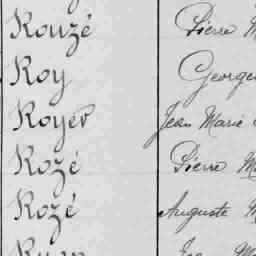 Rouzé Pierre M
Roy Georges
Royer Jean Marie
Rozé Pierre Ma
Rozé Auguste M